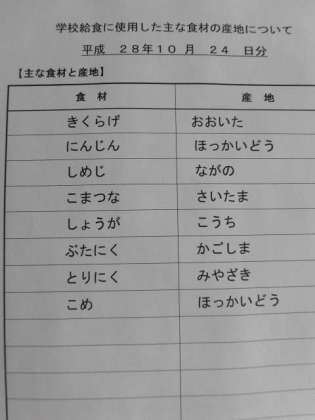 学校給食に使用した主な食材の産地について
平成 28年10月 24 日分
【主な食材と産地】
食 材 産 地
きくらげ おおいた
にんじん ほっかいどう
しめじ ながの
こまつな さいたま
しょうが こうち
ぶたにく かごしま
とりにく みやざき
こめ ほっかいどう